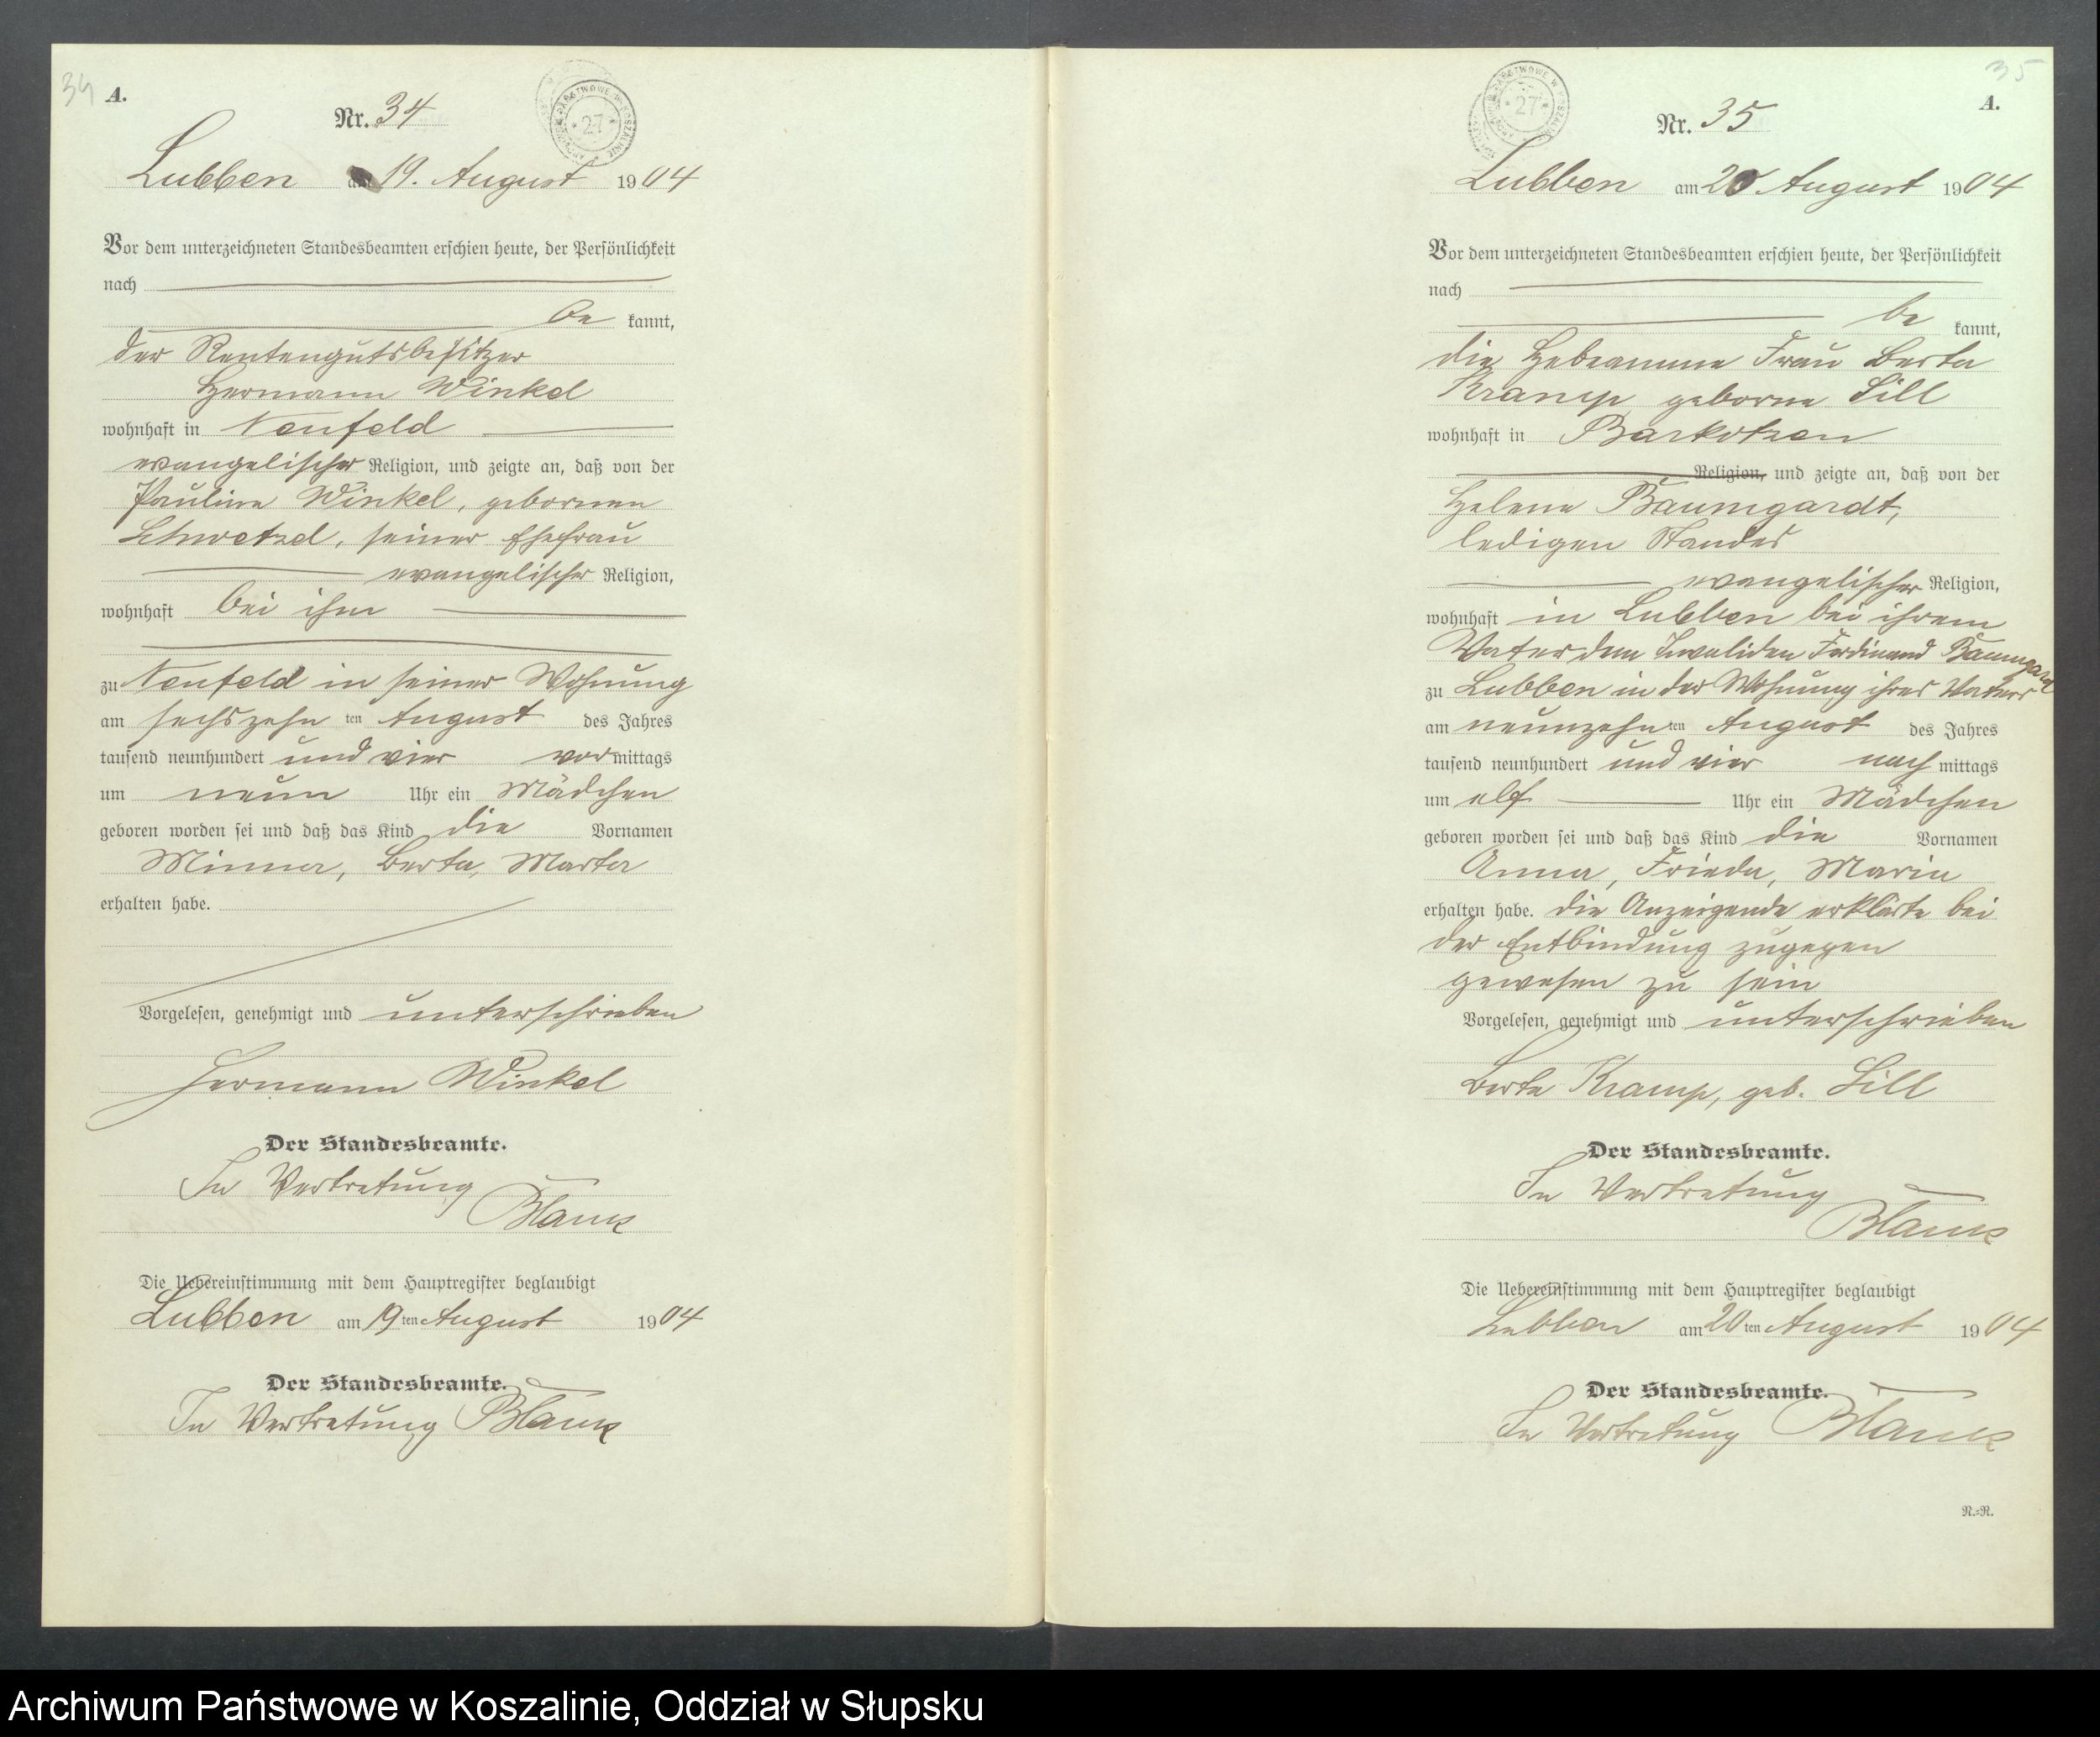 34
A.
Nr. 34
ARCHIWUM PAŃSTWOWE W KOSZALINIE
27
Lubben am 19. August 1904
Vor dem unterzeichneten Standesbeamten erschien heute, der Persönlichkeit
nach
be kannt,
der Rentengutsbesitzer
Hermann Winkel
wohnhaft in Neufeld
evangelischer Religion, und zeigte an, daß von der
Pauline Winkel, gebornen
Schwetzel, seiner Ehefrau
evangelischer Religion,
wohnhaft bei ihm
zu Neufeld in seiner Wohnung
am sechszehn ten August des Jahres
tausend neunhundert und vier vormittags
um neun Uhr ein Mädchen
geboren worden sei und daß das Kind die Vornamen
Minna, Berta, Marta
erhalten habe.
Vorgelesen, genehmigt und unterschrieben
Hermann Winkel
Der Standesbeamte.
In Vertretung
Die Uebereinstimmung mit dem Hauptregister beglaubigt
Lubben am 19 ten August 1904
Der Standesbeamte.
In Vertretung
35
A.
Nr. 35
27
Lubben am 20 August 1904
Vor dem unterzeichneten Standesbeamten erschien heute, der Persönlichkeit
nach
be kannt,
die Hebeamme Frau Berta
Kramp geborne Sill
wohnhaft in Barkotzen
Religion, und zeigte an, daß von der
Helene Baumgardt,
ledigen Standes
evangelischer Religion,
wohnhaft in Lubben bei ihrem
Vater dem Invaliden Ferdinand Baumgardt
zu Lubben in der Wohnung ihres Vaters
am neunzehn ten August des Jahres
tausend neunhundert und vier nachmittags
um elf Uhr ein Mädchen
geboren worden sei und daß das Kind die Vornamen
Anna, Frieda, Maria
erhalten habe. Die Anzeigende erklärte bei
der Entbindung zugegen
gewesen zu sein
Vorgelesen, genehmigt und unterschrieben
Berta Kramp, geb. Sill
Der Standesbeamte.
In Vertretung
Die Uebereinstimmung mit dem Hauptregister beglaubigt
Lubben am 20 ten August 1904
Der Standesbeamte.
In Vertretung
N.=R.
Archiwum Państwowe w Koszalinie, Oddział w Słupsku